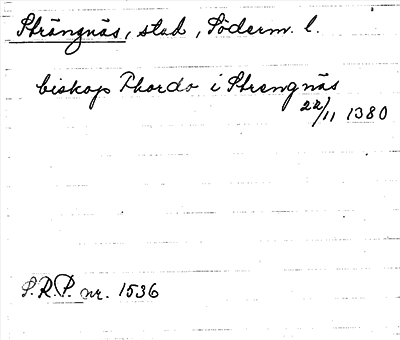 Strängnäs, stad, Söderm. l.
biskop Thordo i Strengnäs
22/11 1380
S.R.P. nr. 1536